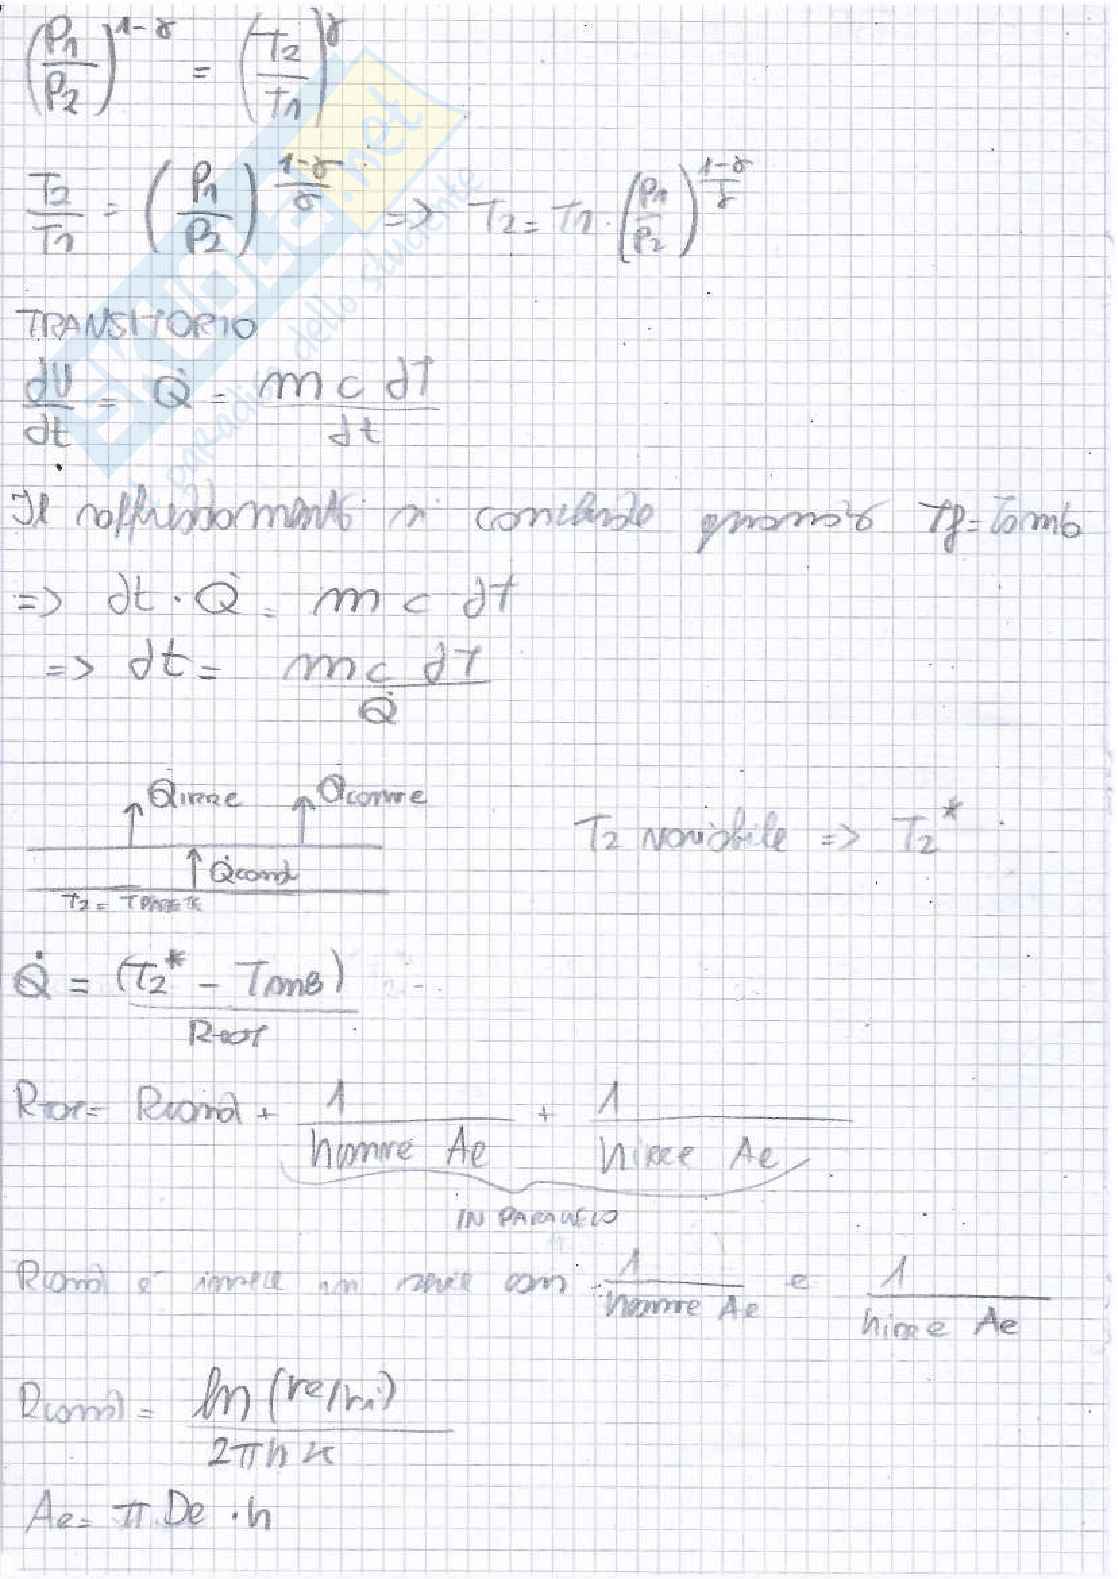 (P1/P2)^1-γ = (T2/T1)^γ
T2/T1 = (P1/P2)^1-γ/γ => T2 = T1 · (P1/P2)^1-γ/γ
TRANSITORIO
dU/dt = Q̇ = m c dT/dt
Il raffreddamento si conclude quando Tf = Tamb
=> dt · Q̇ = m c dT
=> dt = m c dT/Q̇
Q̇irre Q̇conve
Q̇cond
T2 = TPARETE
T2 variabile => T2*
Q̇ = (T2* - TAMB)/Rtot
Rtot = Rcond + 1/hconve Ae + 1/hirre Ae
IN PARALLELO
Rcond è invece in serie con 1/hconve Ae e 1/hirre Ae
Rcond = ln(re/ri)/2πhk
Ae = π · De · h
SKUOLA.net
il paradiso dello studente